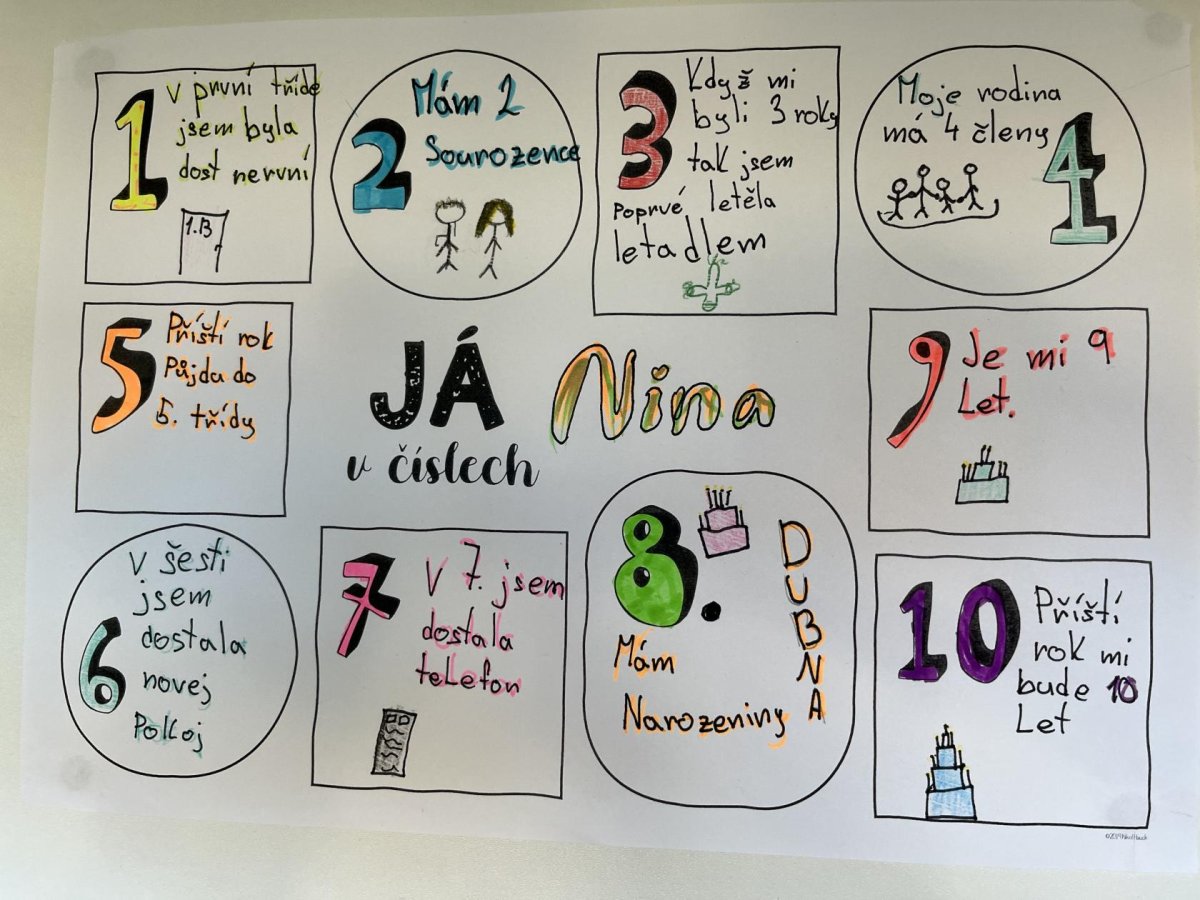 1
V první třídě
jsem byla
dost nervní
1.B
2
Mám 2
Sourozence
3
Když mi
byli 3 roky
tak jsem
poprvé letěla
letadlem
Moje rodina
má 4 členy
4
5
Příští rok
Půjdu do
5. třídy
JÁ
v číslech
Nina
9
Je mi 9
Let.
6
V šesti
jsem
dostala
novej
Pokoj
7
V 7. jsem
dostala
teLefon
8.
DUBNA
Mám
Narozeniny
10
Příští
rok mi
bude 10
Let